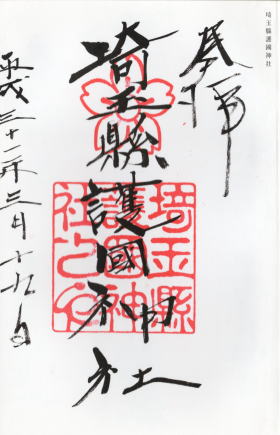 埼玉縣護國神社
奉拝
埼玉縣護國神社
平成三十一年三月十九日
埼玉縣
護國神
社之印